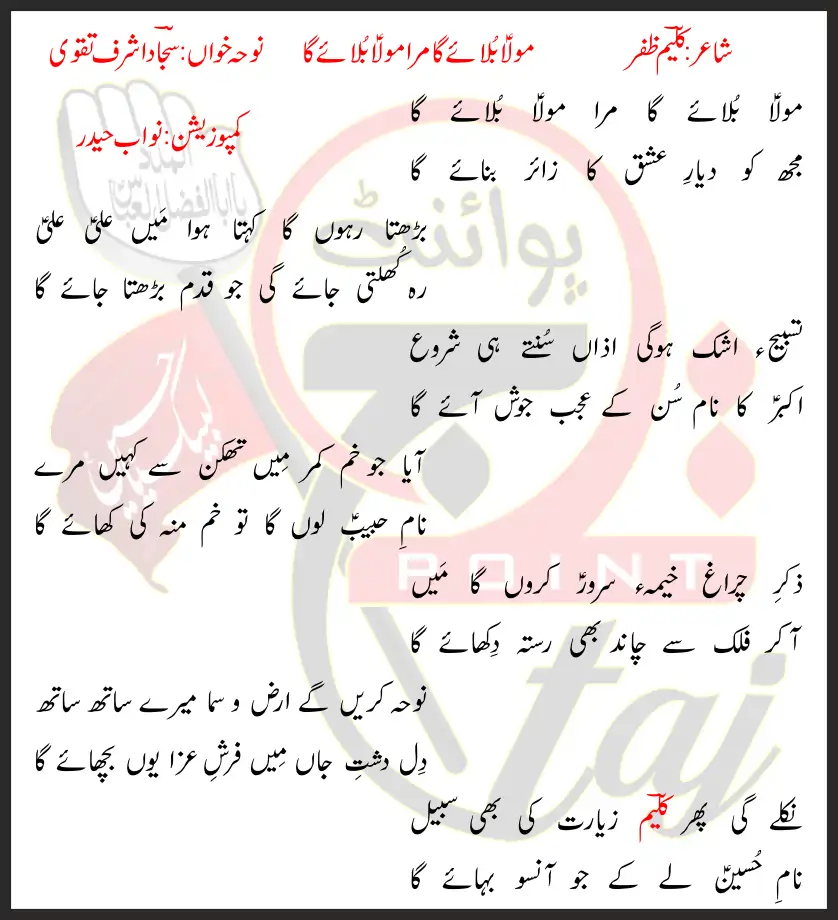 شاعر: کلیمؔ ظفر
مولاؑ بُلائے گا مرا مولاؑ بُلائے گا
نوحہ خواں: سجادؔ اشرف تقوی
کمپوزیشن: نواب حیدر
مولاؑ بُلائے گا مرا مولاؑ بُلائے گا
مجھ کو دیارِ عشق کا زائر بنائے گا
بڑھتا رہوں گا کہتا ہوا مَیں علیؑ علیؑ
رہ کُھلتی جائے گی جو قدم بڑھتا جائے گا
تسبیحِ اشک ہوگی اذاں سُنتے ہی شروع
اکبرؑ کا نام سُن کے عجب جوش آئے گا
آیا جو خم کمر مِیں تھکن سے کہیں مرے
نامِ حبیبؑ لوں گا تو خم منہ کی کھائے گا
ذکرِ چراغِ خیمہء سرورؑ کروں گا مَیں
آکر فلک سے چاند بھی رستہ دِکھائے گا
نوحہ کریں گے ارض و سما میرے ساتھ ساتھ
دِل دشتِ جاں مِیں فرشِ عزا یوں بچھائے گا
نکلے گی پھر کلیمؔ زیارت کی بھی سبیل
نامِ حُسینؑ لے کے جو آنسو بہائے گا
پوائنٹ
POINT
taj
لبیک یا حسین